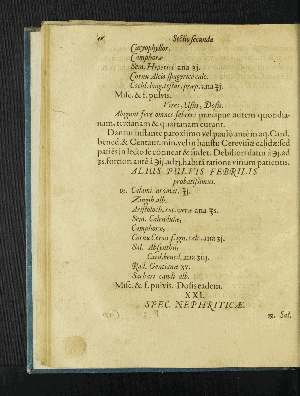 Sectio secunda
Caryophyllor.
Camphoræ
Sem. Hyperici ana ʒj.
Cornu Alcis spagyricè calc.
Misc. & f. pulvis.
Vires, Usus, Dosis.
Abigunt ferè omnes febres: præcipuè autem quotidia-
nam, tertianam & quartanam curant.
Dantur instante paroxismo vel paulò antè in aq. Card.
bened. & Centaur. min. vel in haustu Cerevisiæ calidæ: sed
patiēs in lecto se cōtineat & sudet. Debiliori datur
habitâ ratione virium patientis.
ALIUS PULVIS FEBRILIS
probatissimus.
℞. Calami aromat. ʒj.
Zingib. alb.
Aristoloch. rot. veræ ana ʒs.
Sem. Calendulæ,
Camphoræ,
Cornu Cervi spag. calc. ana ʒij.
Sal. Absynthii,
Card. bened. ana
Rad. Gentianæ
Sacchari candi alb.
Misc. & f. pulvis. Dosis eadem.
XXI.
SPEC. NEPHRITICÆ.
℞. Sal.